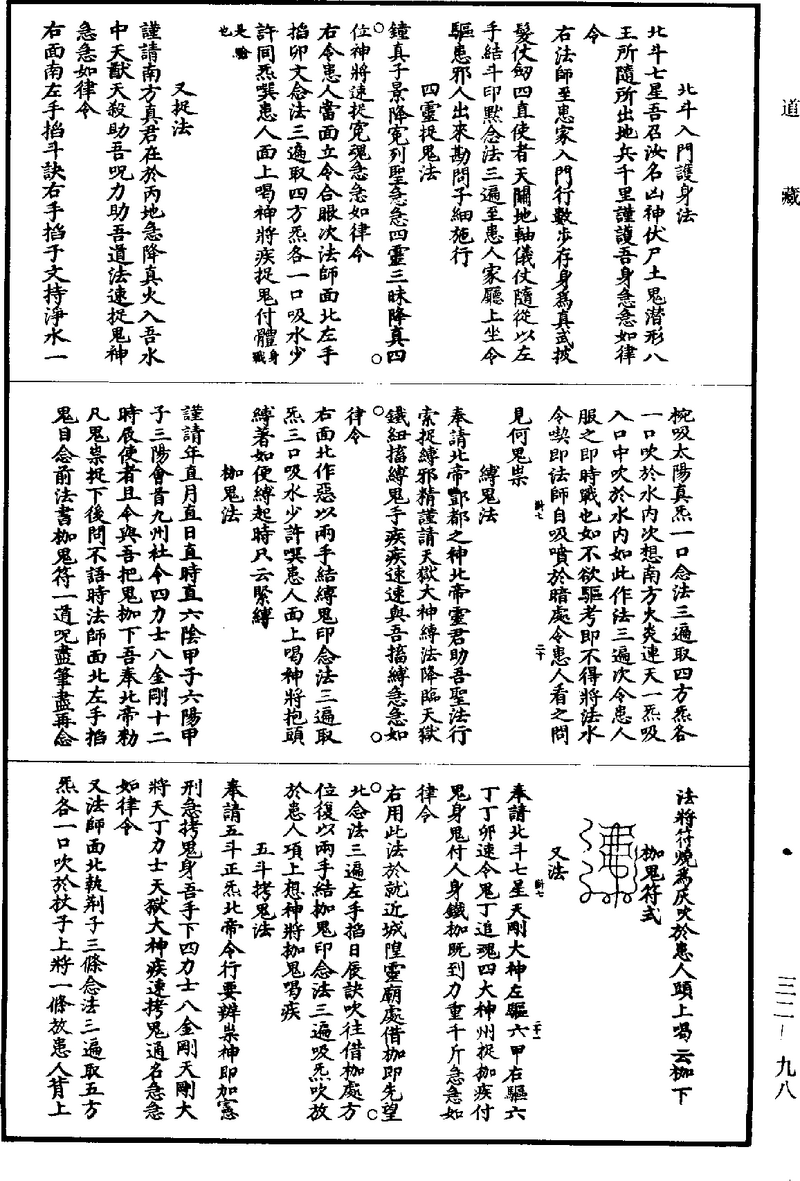 道藏
北斗入門護身法
北斗七星吾召汝名凶神伏尸土鬼潛形八
王所隨所出地兵千里謹護吾身急急如律
令
右法師至患家入門行數步存身為真武披
髮仗劒四直使者天關地軸儀仗隨從以左
手結斗印默念法三遍至患人家廳上坐令
驅患邪人出來勘問子細施行
四靈捉鬼法
鐘真子景降寃列聖急急四靈三昧降真四
位神將速捉寃魂急急如律令
右令患人當面立令合眼次法師面北左手
掐卯文念法三遍取四方炁各一口吸水少
許同炁噀患人面上喝神將疾捉鬼付體身戰
是驗也
又捉法
謹請南方真君在於丙地急降真火入吾水
中天猷天殺助吾呪力助吾道法速捉鬼神
急急如律令
右面南左手掐斗訣右手掐子文持淨水一
椀吸太陽真炁一口念法三遍取四方炁各
一口吹於水內次想南方火炎連天一炁吸
入口中吹於水內如此作法三遍次令患人
服之即時戰也如不欲驅考即不得將法水
令喫即法師自吸噴於暗處令患人看之問
見何鬼祟
縛鬼法
奉請北帝酆都之神北帝靈君助吾聖法行
索捉縛邪精謹請天獄大神縛法降臨天獄
鐵紐搐縛鬼手疾疾速速與吾搐縛急急如
律令
右面北作惡以兩手結縛鬼印念法三遍取
炁三口吸水少許噀患人面上喝神將抱頭
縛著如使縛起時只云緊縛
枷鬼法
謹請年直月直日直時直六陰甲子六陽甲
子三陽會首九州社令四力士八金剛十二
時辰使者且令與吾把鬼枷下吾奉北帝勑
凡鬼祟捉下後問不語時法師面北左手掐
鬼目念前法書枷鬼符一道呪盡筆盡再念
法將符燒為灰吹於患人頭上喝云枷下
枷鬼符式
又法
奉請北斗七星天剛大神左驅六甲右驅六
丁丁卯速令鬼丁追魂四大神州捉枷疾付
鬼身鬼付人身鐵枷既到力重千斤急急如
律令
右用此法於就近城隍靈廟處借枷即先望
北念法三遍左手掐日辰訣吹往借枷處方
位復以兩手結枷鬼印念法三遍吸炁吹放
於患人項上想神將枷鬼喝疾
五斗拷鬼法
奉請五斗正炁北帝令行要辨祟神即加憲
刑急拷鬼身吾手下四力士八金剛天剛大
將天丁力士天獄大神疾速拷鬼通名急急
如律令
又法師面北執荆子三條念法三遍取五方
炁各一口吹於杖子上將一條放患人背上
三二－九八